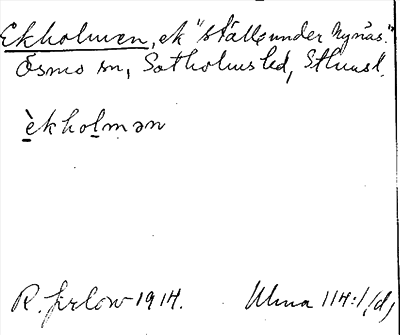 Ekholmen, ek "ställe under Nynäs."
Ösmo sn, Sotholms hd, Sthmsl.
èkholmən
R. Jirlow 1914. Ulma 114:1, (d)